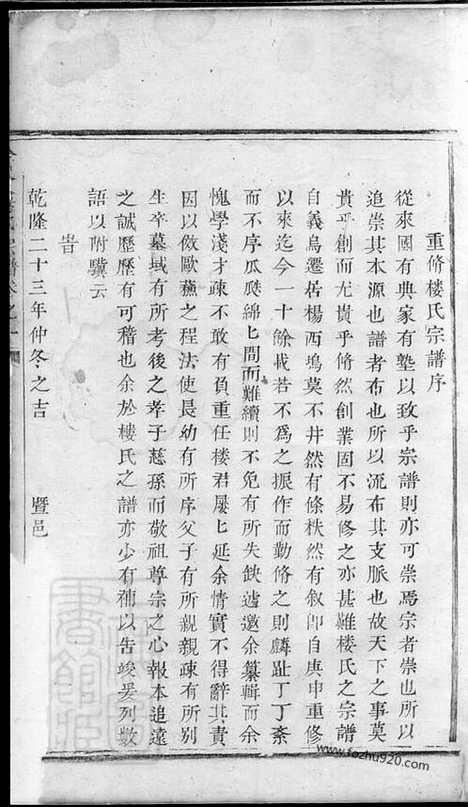 重脩楼氏宗譜序
從來國有典家有塾以致乎宗譜則亦可崇焉宗者崇也所以
追崇其本源也譜者布也所以流布其支脈也故天下之事莫
貴乎創而尤貴乎脩然創業固不易修之亦甚難楼氏之宗譜
自義烏遷居楊西塢莫不井然有條秩然有叙即自庚申重修
以來迄今一十餘載若不為之振作而勤脩之則麟趾丁丁紊
而不序瓜瓞綿匕間而難續則不免有所失鈌遽邀余纂輯而余
愧學淺才疎不敢有負重任楼君屢匕延余情實不得辭其責
因以倣歐蘓之程法使長幼有所序父子有所親親疎有所别
生卒墓域有所考後之孝子慈孫而敬祖尊宗之心報本追遠
之誠歷歷有可稽也余於楼氏之譜亦少有補以告竣爰列數
語以附驥云
旹
乾隆二十三年仲冬之吉 暨邑
www.fozhu920.com